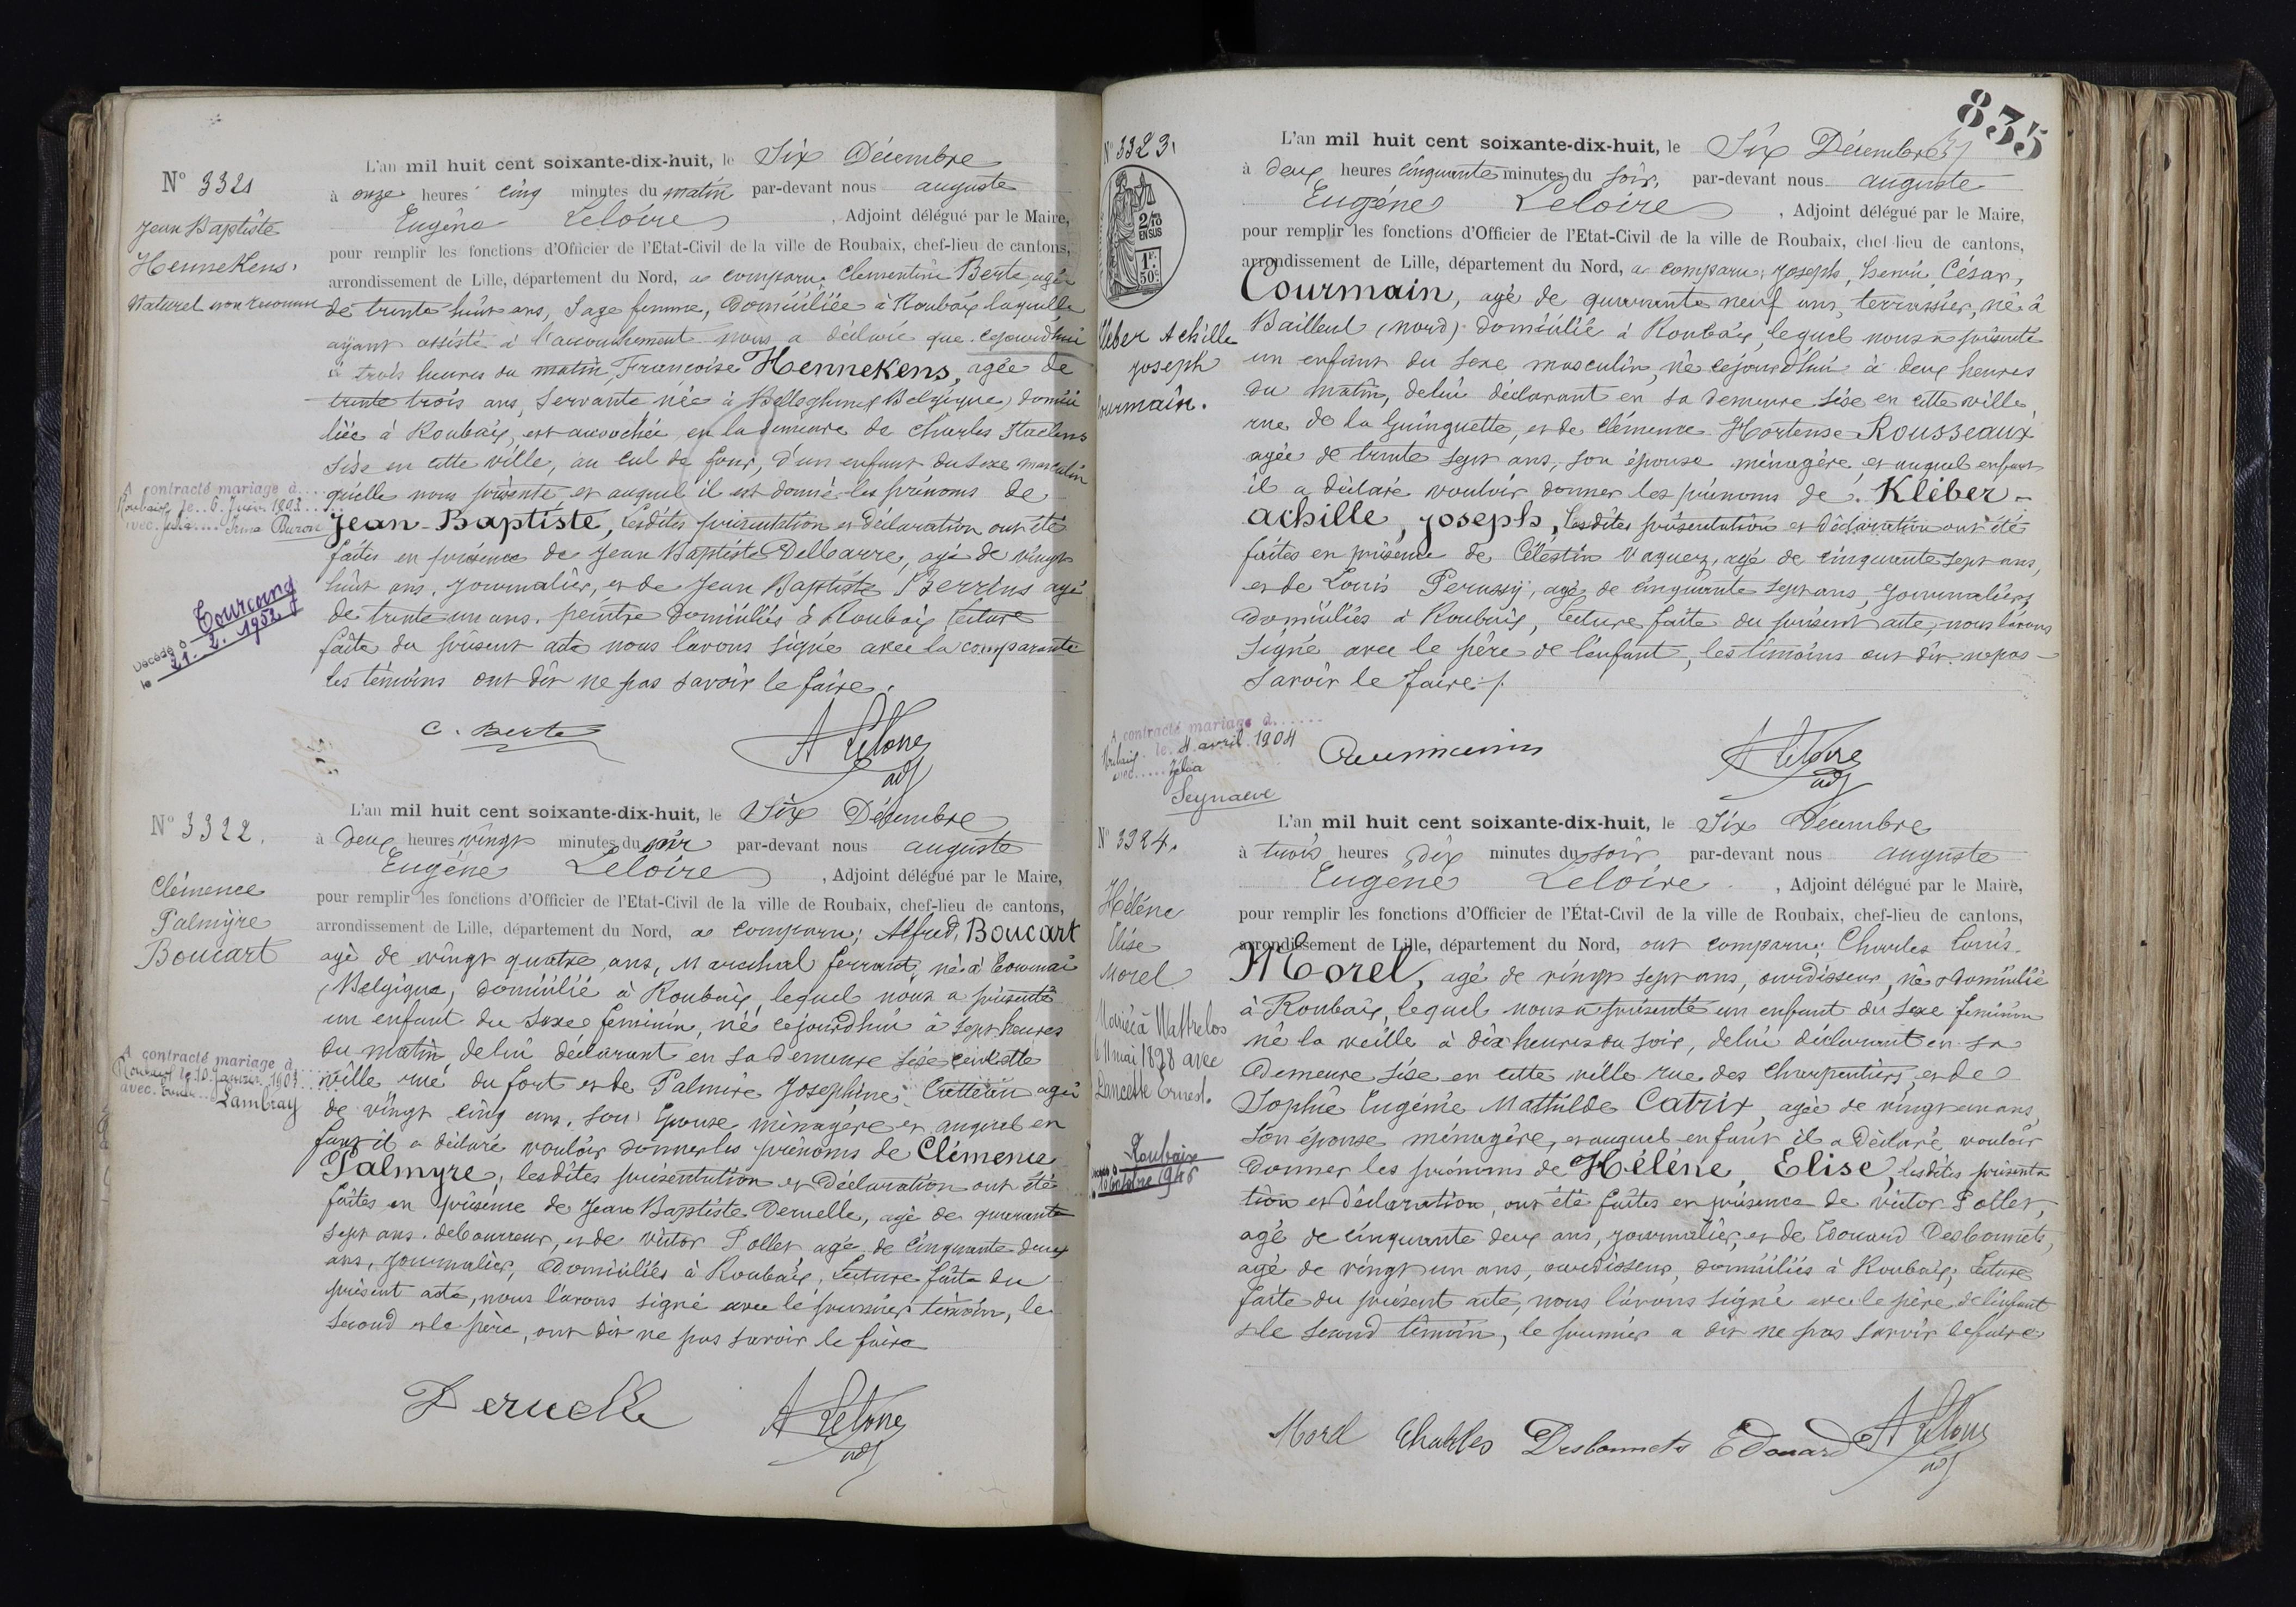 N° 3321
Jean Baptiste
Hennekens.
Naturel non reconnu
A contracté mariage à
Roubaix, le 6 Juin 1903
avec
Décédé à Tourcoing
le 21. 2. 1952
L'an mil huit cent soixante-dix-huit, le Six Décembre
à onze heures cinq minutes du matin par-devant nous auguste
Eugène Leloire, Adjoint délégué par le Maire,
pour remplir les fonctions d'Officier de l'Etat-Civil de la ville de Roubaix, chef-lieu de cantons,
arrondissement de Lille, département du Nord, a comparu, Clementine Berte, agée
de trente huit ans, Sage femme, domiciliée à Roubaix laquelle
ayant assisté à l'accouchement nous a déclaré que cejourd'hui
à trois heures du matin, Françoise Hennekens, agée de
trente trois ans, Servante née à Belleghem (Belgique) domici
liée à Roubaix, est accouchée en la demeure de Charles Staelens
Sise en cette ville, au cul de four, d'un enfant du Sexe masculin
qu'elle nous présente et auquel il est donné les prénoms de
Jean-Baptiste, lesdites présentation et déclaration ont été
faites en présence de Jean Baptiste Delbarre, agé de vingt
huit ans, Journalier, et de Jean Baptiste Berrins agé
de trente un ans, peintre domiciliés à Roubaix lecture
faite du présent acte nous l'avons signé avec la comparante
les témoins ont dit ne pas savoir le faire.
C. Berte A Leloire
adj
N° 3322.
Clémence
Palmyre
Boucart
A contracté mariage à
Roubaix le 10 Janvier 1903
avec Lambray
L'an mil huit cent soixante-dix-huit, le Six Décembre
à deux heures vingt minutes du soir par-devant nous auguste
Eugène Leloire, Adjoint délégué par le Maire,
pour remplir les fonctions d'Officier de l'Etat-Civil de la ville de Roubaix, chef-lieu de cantons,
arrondissement de Lille, département du Nord, a comparu; Alfred, Boucart
agé de vingt quatre ans, Marechal ferrant, né à Tournai
(Belgique, domicilié à Roubaix, lequel nous a présenté
un enfant du Sexe feminin, né cejourd'hui à sept heures
du matin, de lui déclarant en sa demeure sise en cette
ville rue du fort et de Palmire Josephine Catteau agée
de vingt cinq ans, son épouse ménagère et auquel en
fant il a déclaré vouloir donner les prénoms de Clémence
Palmyre, lesdites présentation et déclaration ont été
faites en présence de Jean Baptiste Deruelle, agé de quarante
sept ans, debourreur, et de Victor Pollet agé de cinquante deux
ans, Journalier, domiciliés à Roubaix, Lecture faite du
présent acte, nous l'avons signé avec le premier témoin, le
second et le père, ont dit ne pas savoir le faire
Deruelle A Leloire
adj
835
N° 3323.
2/10
EN SUS
1F.
50c
Kléber Achille
Joseph
Courmain.
A contracté mariage à
Roubaix le 4 avril 1904
avec Zélia
Seynaeve
L'an mil huit cent soixante-dix-huit, le Six Décembre
à deux heures cinquante minutes du soir, par-devant nous auguste
Eugène Leloire, Adjoint délégué par le Maire,
pour remplir les fonctions d'Officier de l'Etat-Civil de la ville de Roubaix, chef-lieu de cantons,
arrondissement de Lille, département du Nord, a comparu; Joseph, Henri, César,
Courmain, agé de quarante neuf ans, terrassier, né à
Bailleul (Nord) domicilié à Roubaix, lequel nous a présenté
un enfant du sexe masculin, né cejourd'hui à deux heures
du matin, de lui déclarant en sa demeure sise en cette ville,
rue de la Guinguette, et de Clémence Hortense Rousseaux
agée de trente sept ans, son épouse ménagère et auquel enfant
il a déclaré vouloir donner les prénoms de: Kléber-
achille, Joseph, lesdites présentation et déclaration ont été
faites en présence de Célestin Vaquez, agé de cinquante sept ans,
et de Louis Perussy, agé de cinquante sept ans, Journaliers,
domiciliés à Roubaix, lecture faite du présent acte, nous l'avons
Signé avec le père de l'enfant, les témoins ont dit ne pas
savoir le faire ./.
Courmain A Leloire
adj
N° 3324.
Hélène
Elise
Morel
Mariée à Wattrelos
le 11 mai 1898 avec
Ernest.
Roubaix
octobre 1946
L'an mil huit cent soixante-dix-huit, le Six Décembre
à trois heures dix minutes du soir, par-devant nous auguste
Eugène Leloire, Adjoint délégué par le Maire,
pour remplir les fonctions d'Officier de l'État-Civil de la ville de Roubaix, chef-lieu de cantons,
arrondissement de Lille, département du Nord, ont comparu; Charles Louis
Morel, agé de vingt sept ans, ourdisseur, né et domicilié
à Roubaix, lequel nous a présenté un enfant du sexe feminin
né la veille à dix heures du soir, de lui déclarant en sa
demeure sise en cette ville rue des Charpentiers, et de
Sophie Eugénie Mathilde Catrix, agée de vingt un ans,
son épouse ménagère, et auquel enfant il a déclaré vouloir
donner les prénoms de Hélène, Elise, lesdites présenta
tion et déclaration, ont été faites en présence de Victor Pollet,
agé de cinquante deux ans, journalier, et de Edouard Desbonnets,
agé de vingt un ans, ourdisseur, domiciliés à Roubaix; Lecture
faite du présent acte, nous l'avons signé avec le père de l'enfant
et le second témoin, le premier a dit ne pas savoir le faire
Morel Charles Desbonnets Edouard A Leloire
adj